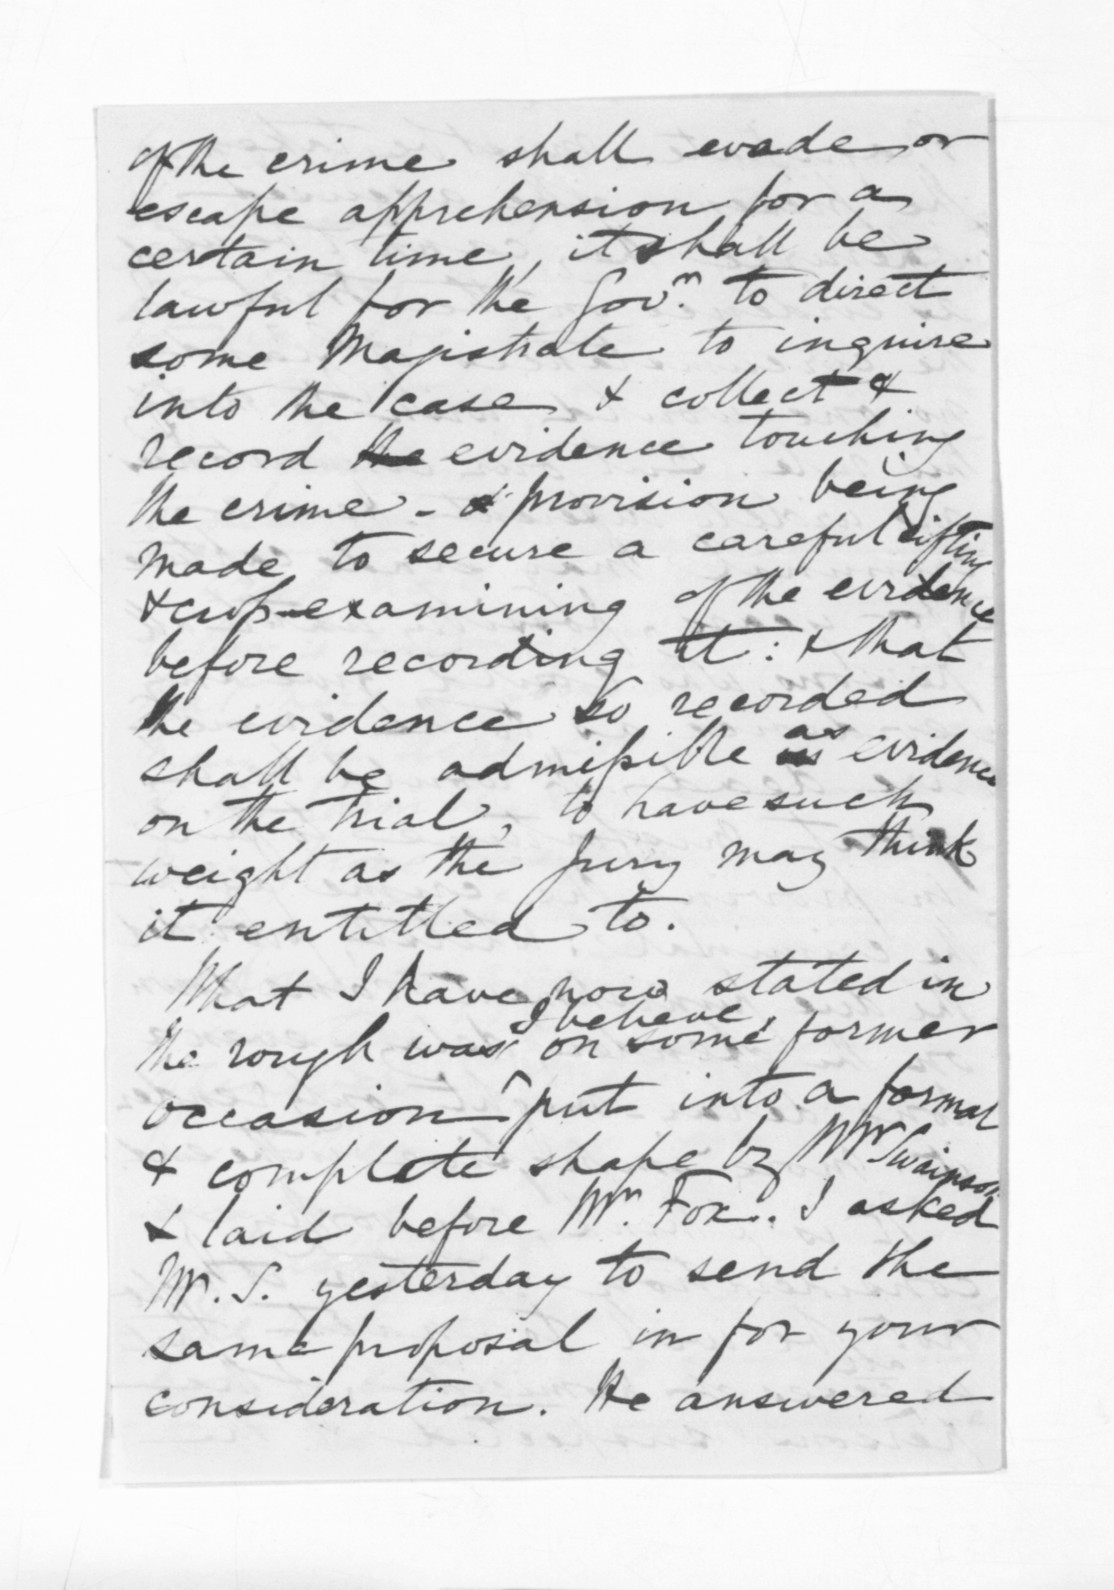 of the crime shall evade or
escape apprehension for a
certain time, it shall be
lawful for the Govr. to direct
some Magistrate to inquire
into the case & collect &
record the evidence touching
the crime - & provision being
made to secure a careful sifting
& cross-examining of the evidence
before recording it: & that
the evidence so recorded
shall be admissible as evidence
on the trial, to have such
weight as the jury may think
it entitled to.
What I have now stated in
the rough was on some former
I believe,
occasion ^ put into a formal
& complete shape by Mr Swainson
& laid before Mr. Fox. I asked
Mr. S. yesterday to send the
same proposal in for your
consideration. He answered